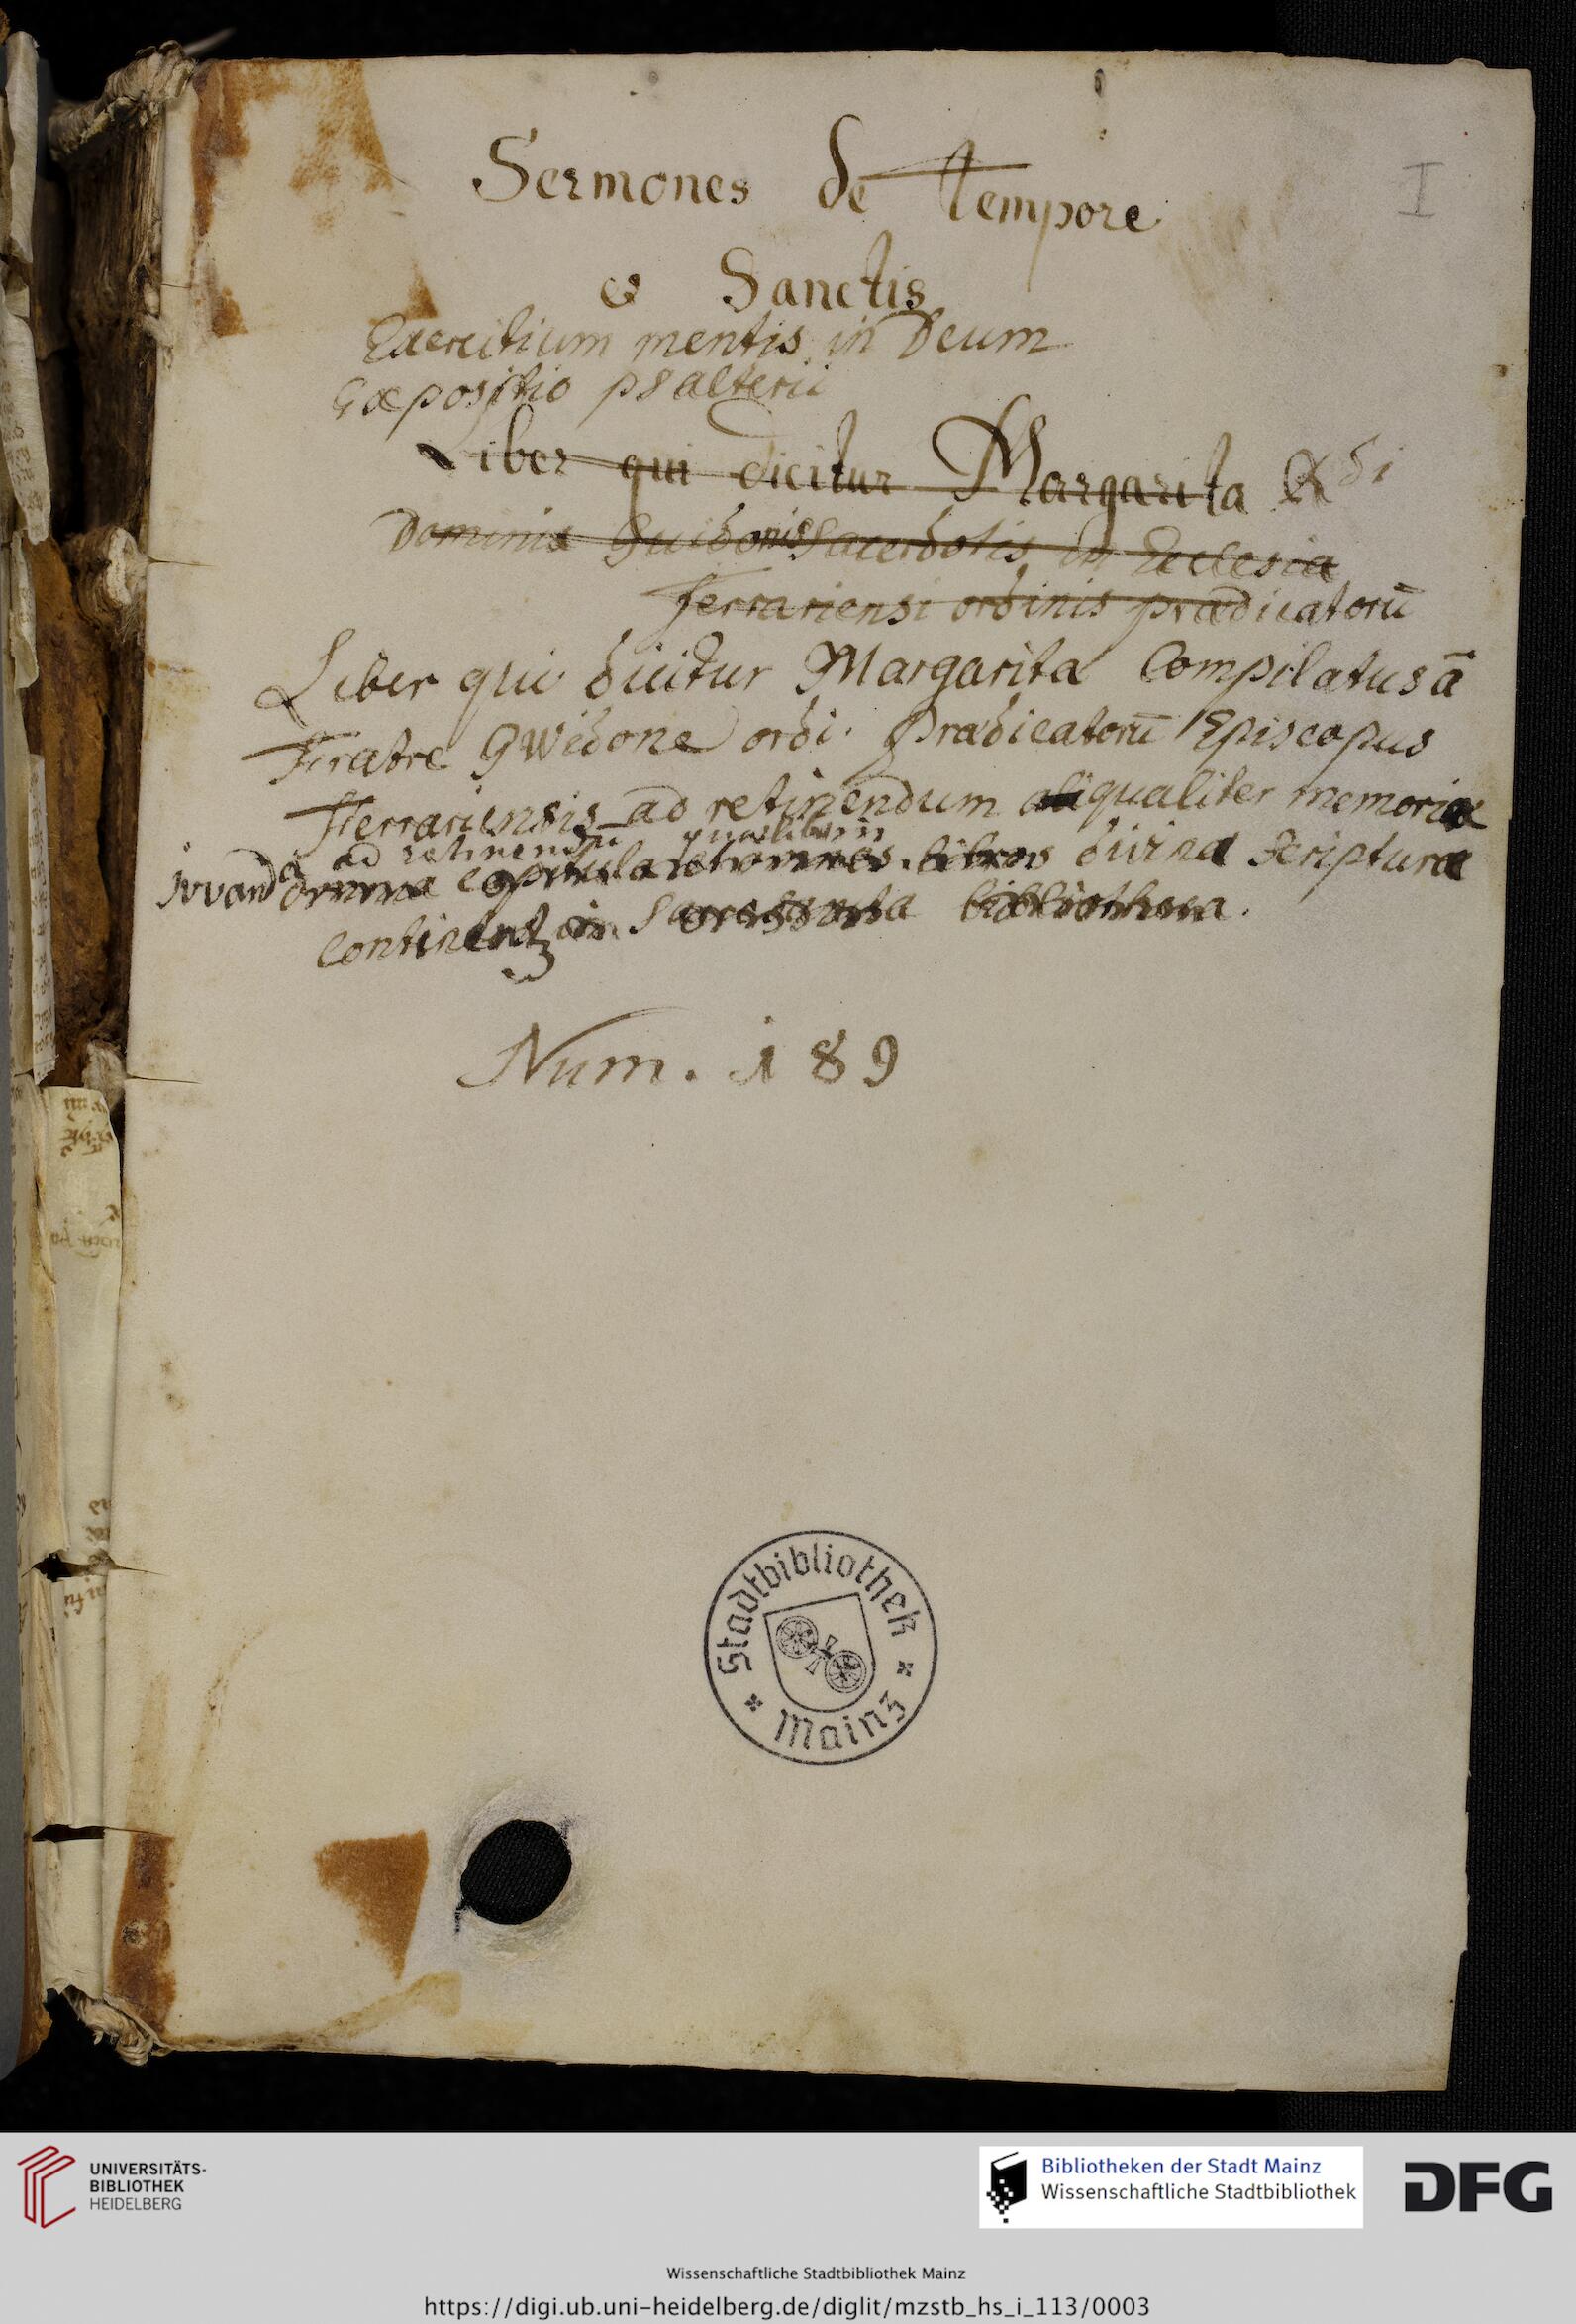 I
Sermones de Tempore
& Sanctis
Exercitium mentis in Deum
Expositio psalterii
Liber qui dicitur Margarita
Dominis Guidonis Sacerdotis in Ecclesia
Ferrariensi ordinis prædicatorū
Liber qui dicitur Margarita Compilatus à
Fratre Gwidone ordi. Prædicatorū Episcopus
Ferrariensis ad retinendum aliqualiter memoriæ
ad retinendū
capitula libros divinæ Scripturæ
continent in bibliotheca.
Num. 189
Stadtbibliothek
Mainz
UNIVERSITÄTS-
BIBLIOTHEK
HEIDELBERG
Bibliotheken der Stadt Mainz
Wissenschaftliche Stadtbibliothek
DFG
Wissenschaftliche Stadtbibliothek Mainz
https://digi.ub.uni-heidelberg.de/diglit/mzstb_hs_i_113/0003